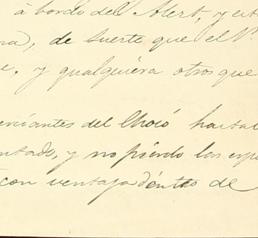 á bordo del Alert, y est
ra), de suerte que el V.
e, y qualquiera otros que
enciantes del Chocó hasta
ntado, y no pierdo las esp
con ventaja déntro de